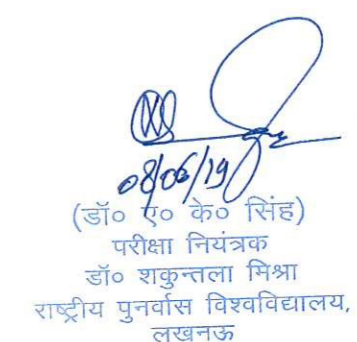 08/06/19
(डॉ० ए० के० सिंह)
परीक्षा नियंत्रक
डॉ० शकुन्तला मिश्रा
राष्ट्रीय पुनर्वास विश्वविद्यालय,
लखनऊ